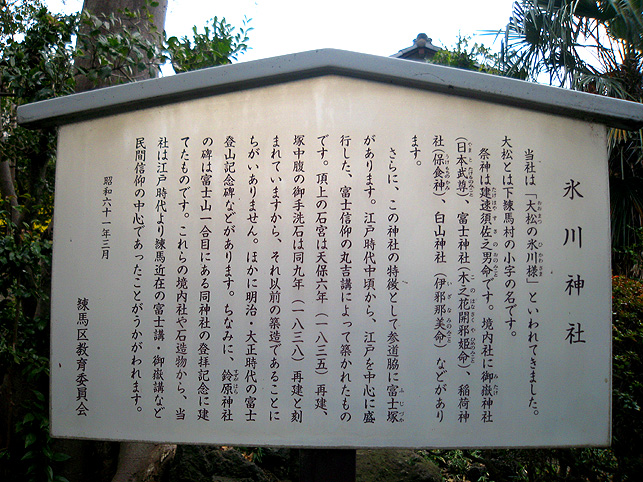 氷川神社
当社は「大松の氷川様」といわれてきました。
大松とは下練馬村の小字の名です。
祭神は建速須佐之男命です。境内社に御嶽神社
（日本武尊）、富士神社（木之花開邪姫命）、稲荷神
社（保食神）、白山神社（伊邪那美命）などがあり
ます。
さらに、この神社の特徴として参道脇に富士塚
があります。江戸時代中頃から、江戸を中心に盛
行した、富士信仰の丸吉講によって築かれたもの
です。頂上の石宮は天保六年（一八三五）再建、
塚中腹の御手洗石は同九年（一八三八）再建と刻
まれていますから、それ以前の築造であることに
ちがいありません。ほかに明治・大正時代の富士
登山記念碑などがあります。ちなみに、鈴原神社
の碑は富士山一合目にある同神社の登拝記念に建
てたものです。これらの境内社や石造物から、当
社は江戸時代より練馬近在の富士講・御嶽講など
民間信仰の中心であったことがうかがわれます。
昭和六十一年三月
練馬区教育委員会